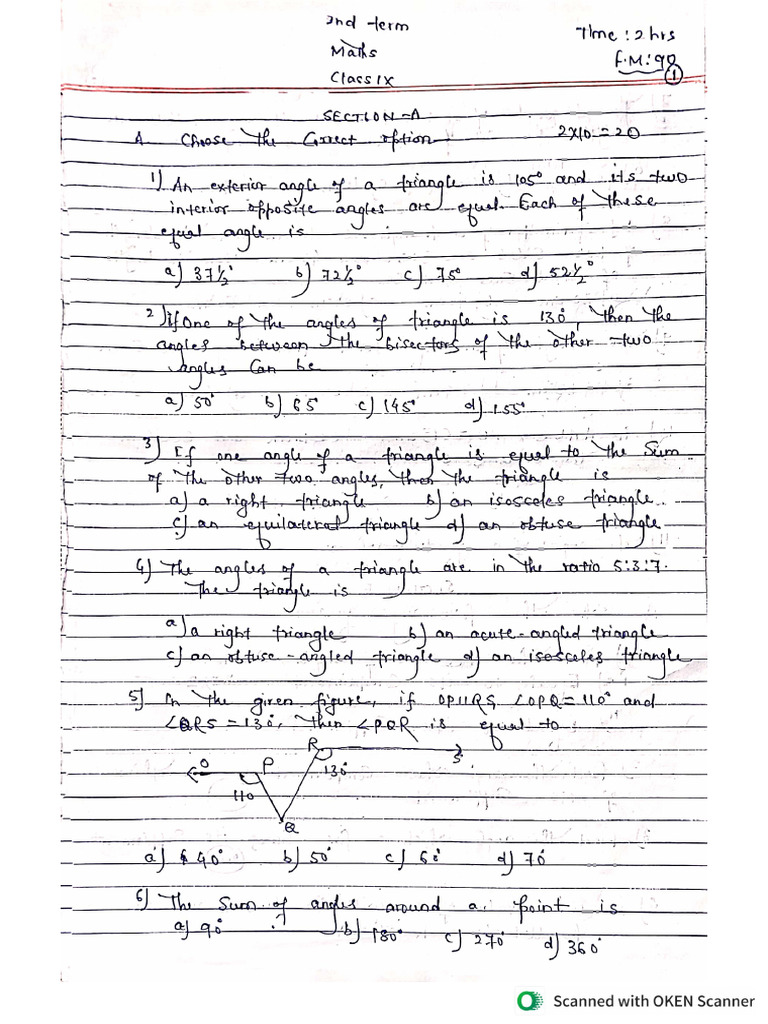 2nd term
Time : 2 hrs
Maths
F.M: 90
Class IX
1
SECTION-A
A Choose the Correct option 2x10 = 20
1) An exterior angle of a triangle is 105° and its two
interior opposite angles are equal. Each of these
equal angle is
a) 37½° b) 72½° c) 75° d) 52½°
2) If One of the angles of triangle is 130°, then the
angles between the bisectors of the other two
angles Can be
a) 50° b) 65° c) 145° d) 155°
3) If one angle of a triangle is equal to the Sum
of the other two angles, then the triangle is
a) a right triangle b) an isosceles triangle
c) an equilateral triangle d) an obtuse triangle
4) The angles of a triangle are in the ratio 5:3:7.
The triangle is
a) a right triangle b) an acute-angled triangle
c) an obtuse-angled triangle d) an isosceles triangle
5) In the given figure, if OP||RS, ∠OPQ = 110° and
∠QRS = 130°, then ∠PQR is equal to
R S
O P 130°
110
Q
a) 40° b) 50° c) 60° d) 70°
6) The Sum of angles around a point is
a) 90° b) 180° c) 270° d) 360°
Scanned with OKEN Scanner